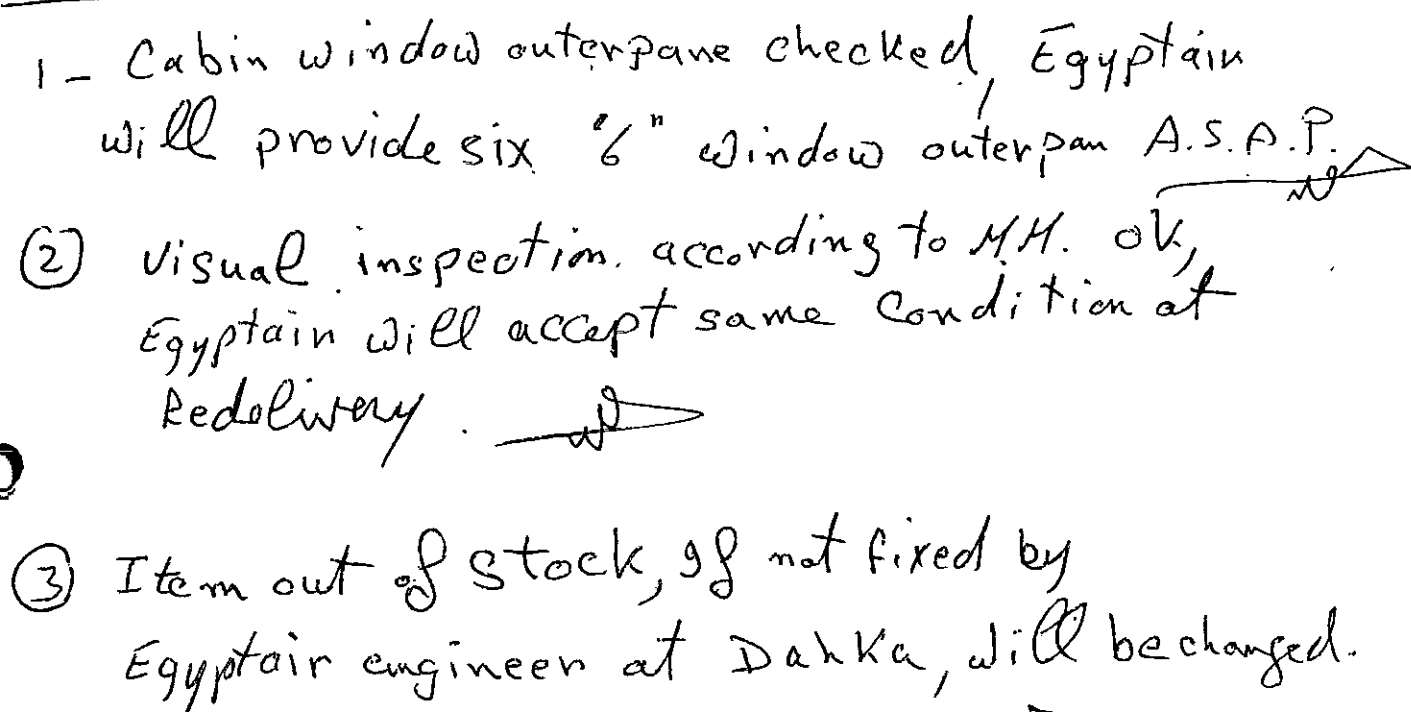 1 - Cabin window outerpane checked, Egyptain
will provide six "6" window outerpan A.S.A.P.
② Visual inspection. according to M.M. OK,
Egyptain will accept same Condition at
Redelivery.
③ Item out of stock, If not fixed by
Egyptair engineer at Dahka, will be changed.